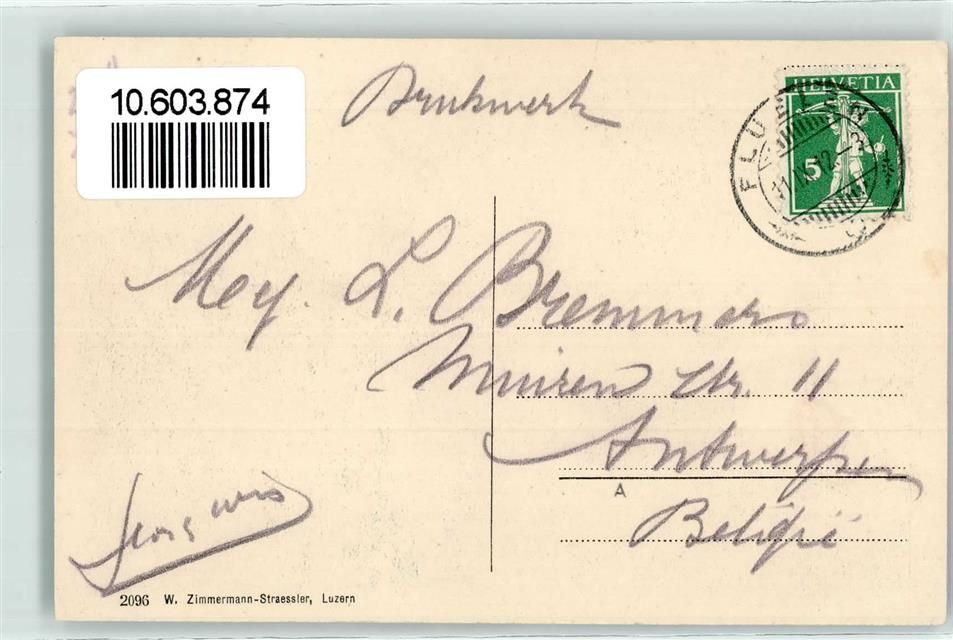 10.603.874
Drukwerk
HELVETIA
5
FLUELEN
Mej. L. Bremmers
Str. 11
Antwerpen
A
België
2096 W. Zimmermann-Straessler, Luzern